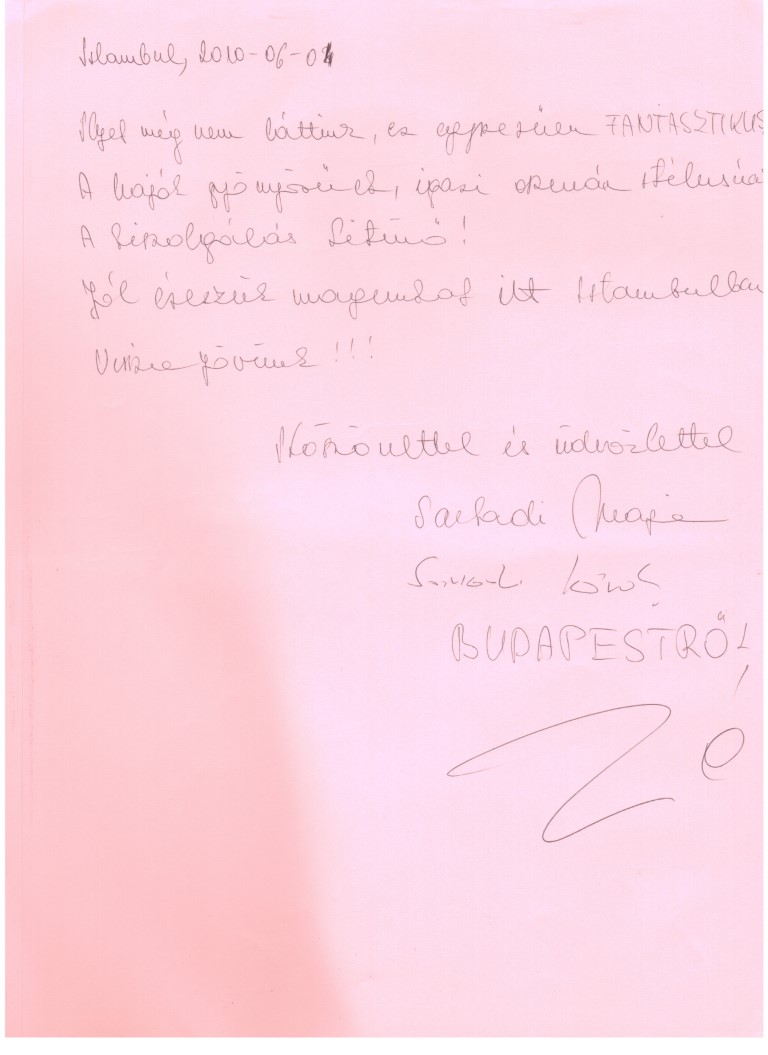 Istambul, 2010-06-04
Ilyet még nem láttunk, ez egyszerűen FANTASZTIKUS
A hajók gyönyörűek, igazi óceán
A kiszolgálás kitűnő!
Jól érezzük magunkat itt Istambulban
Vissza jövünk!!!
Köszönettel és üdvözlettel
BUDAPESTRŐL